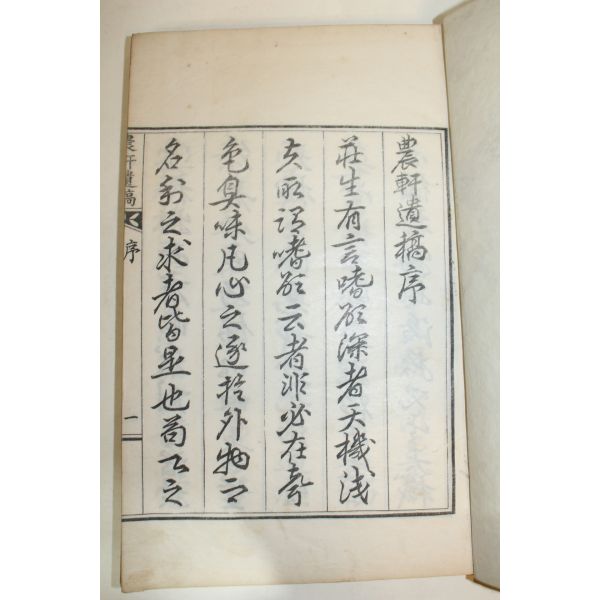 農軒遺稿序
莊生有言嗜慾深者天機淺
夫所謂嗜慾云者非必在聲
色臭味凡心之逐於外物而
名利之求者皆是也苟人之
農軒遺稿
序
一